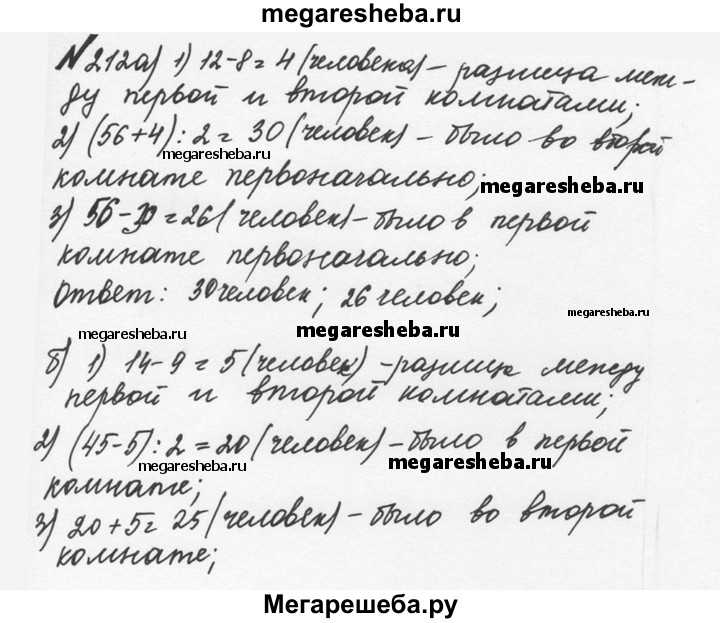 megaresheba.ru
№212а) 1) 12-8=4 (человека) - разница меж-
ду первой и второй комнатами;
2) (56+4):2=30 (человек) - было во второй
megaresheba.ru
комнате первоначально;
megaresheba.ru
3) 56-30=26 (человек) - было в первой
комнате первоначально;
Ответ: 30 человек; 26 человек;
megaresheba.ru
megaresheba.ru
megaresheba.ru
б) 1) 14-9=5 (человек) - разница между
первой и второй комнатами;
2) (45-5):2=20 (человек) - было в первой
megaresheba.ru
megaresheba.ru
комнате;
3) 20+5=25 (человек) - было во второй
комнате;
Мегарешеба.ру